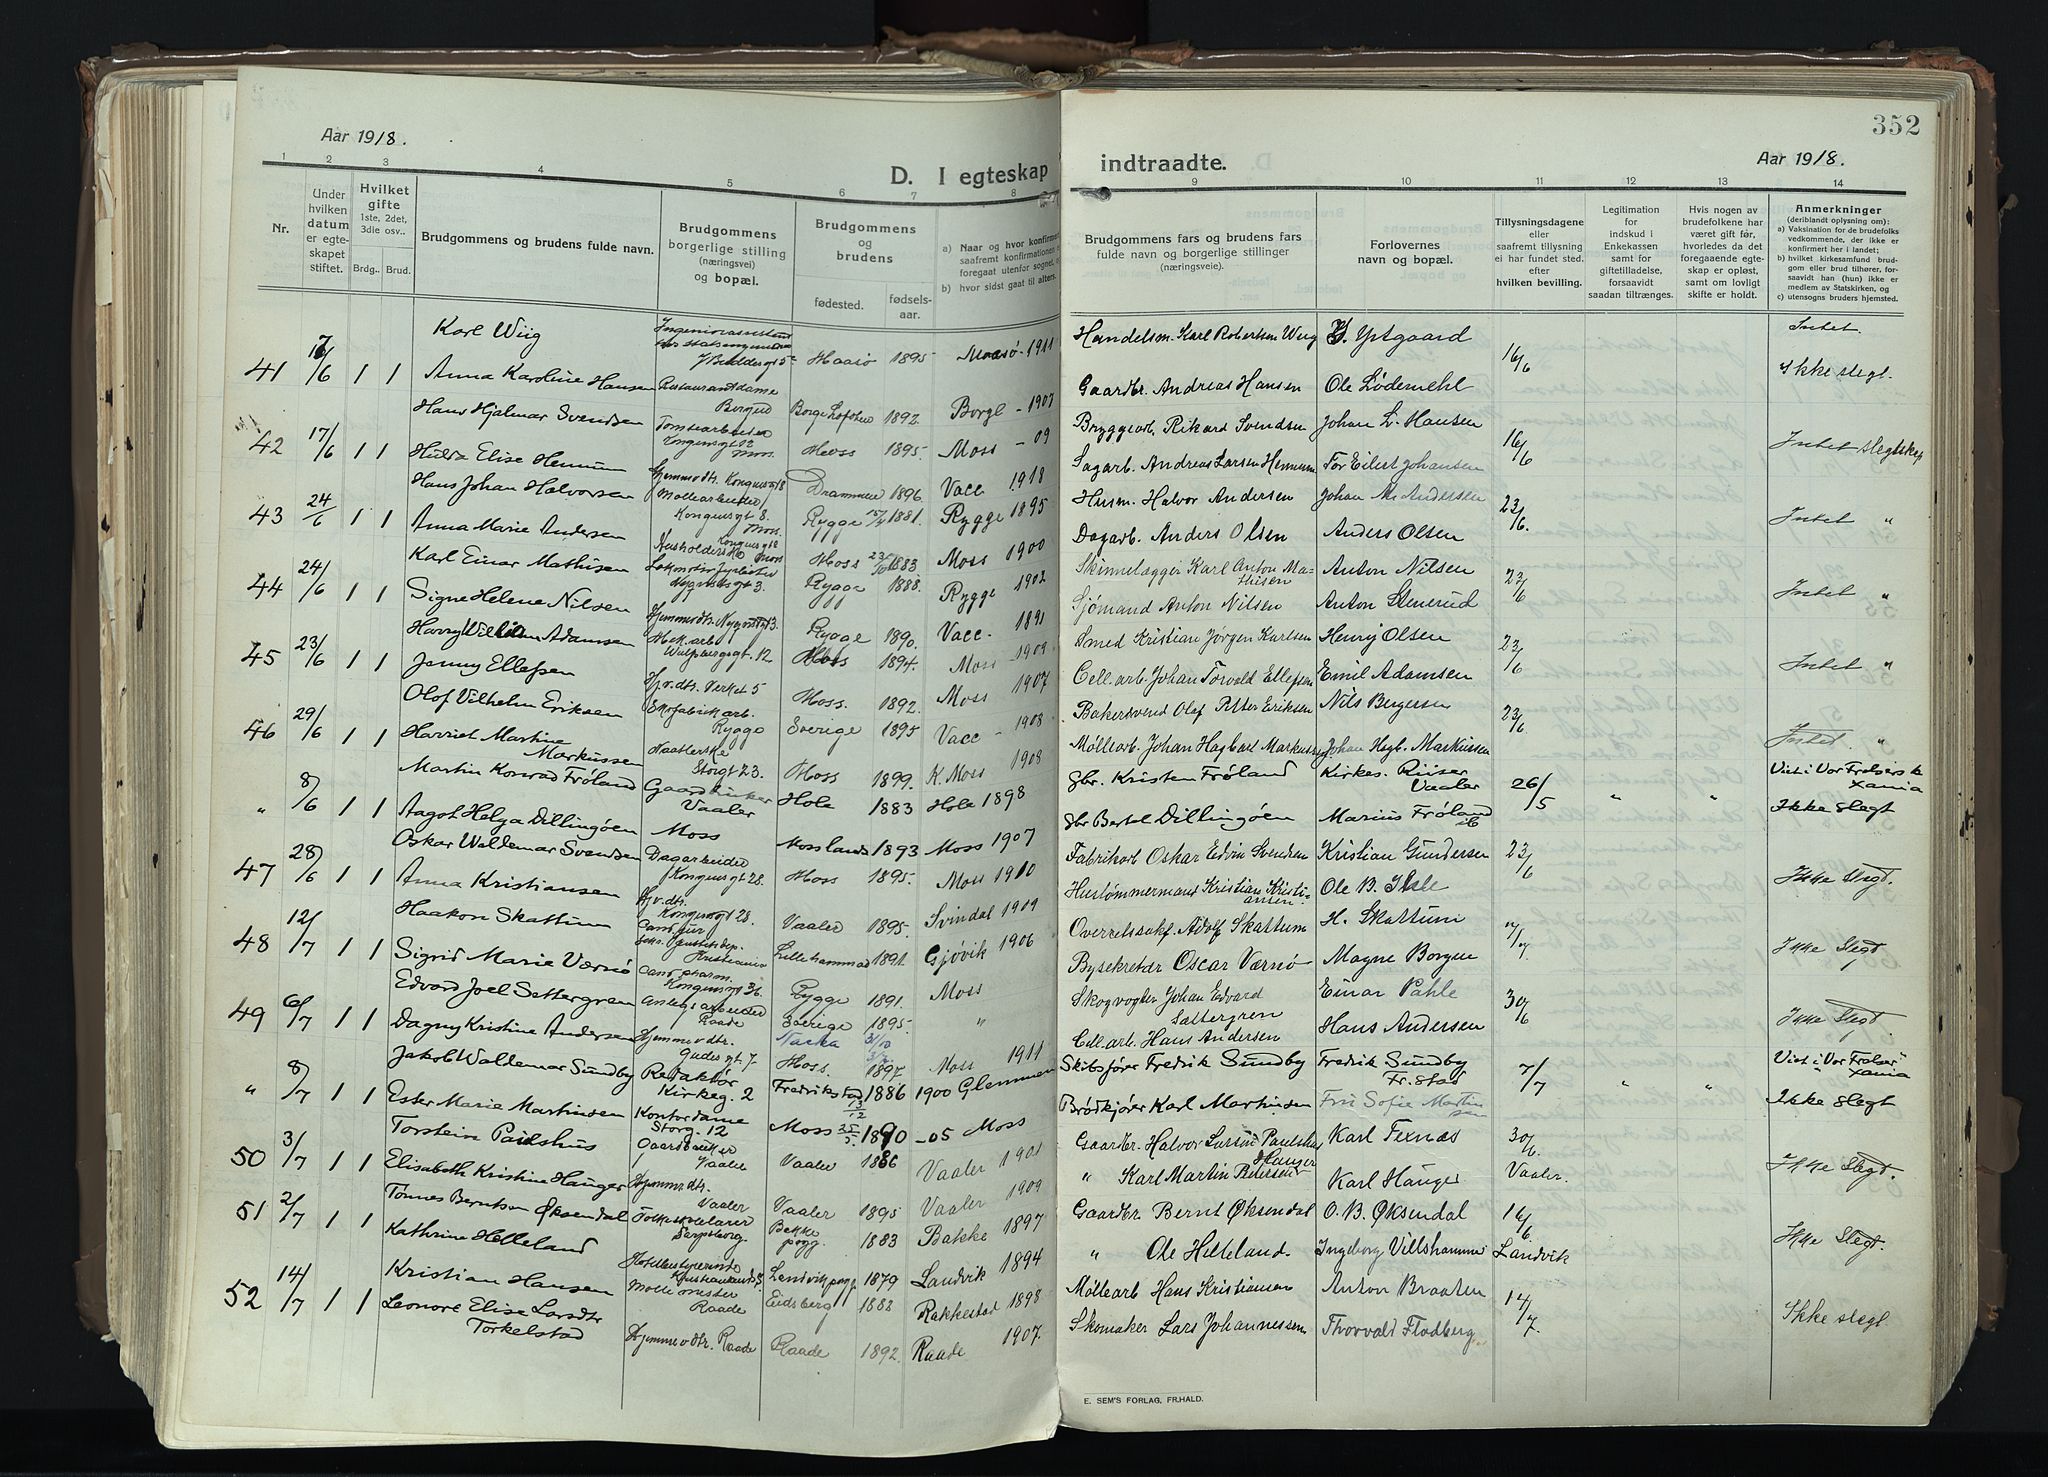 Aar 1918.
D. I egteskap
1 2 3 4 5 6 7 8
Nr.
Under hvilken datum er egteskapet stiftet.
Hvilket gifte 1ste, 2det, 3die osv..
Brdg. Brud.
Brudgommens og brudens fulde navn.
Brudgommens borgerlige stilling (næringsvei) og bopæl.
Brudgommens og brudens
fødested. fødselsaar.
a) Naar og hvor konfirm
saafremt konfirmationen
foregaat utenfor sognet,
b) hvor sidst gaat til alters.
41 1 1 Karl Wiig 1895 1911
Anna Karoline Hansen Restaurantdame Borge 1892 Borge - 1907
42 17/6 1 1 Hans Hjalmar Svendsen Tomtearbeider Kongensgt 22 Moss Moss 1895 Moss - 09
Hulda Elise Hennum Hjemmevdtr. Kongensgt 8 Drammen 1896 Vace 1918
43 24/6 1 1 Hans Johan Halvorsen Møllearbeider Kongensgt 8. Moss Rygge 15/4 1881. Rygge 1895
Anna Marie Andersen Moss 1883 Moss 1900
44 24/6 1 1 Karl Einar Mathisen Rygge 1888. Rygge 1902
Signe Helene Nilsen Rygge 1890. Vace - 1891
45 23/6 1 1 Harry William Adamsen Mek. arb. Wulfsbergsgt. 12 Moss 1894. Moss - 1909
Jenny Ellefsen Hjv.dtr. Verket 5 Moss. 1892. Moss 1907
46 29/6 1 1 Olof Vilhelm Eriksen Rygge Sverige 1895 Vace - 1908
Harriet Martine Markussen Storgt 23. Moss 1899. K. Moss 1908
" 8/6 1 1 Martin Konrad Frøland Gaardbruker Vaaler Hole 1883 Hole 1898
Aagot Helga Dillingøen Moss Mossland 1893 Moss 1907
47 28/6 1 1 Oskar Waldemar Svendsen Dagarbeider Kongensgt 28. Moss 1895. Moss 1910
Anna Kristiansen Hjv.dtr. Kongensgt 28. Vaaler 1895. Svindal 1909
48 12/7 1 1 Haakon Skattum Cand. jur Kristiania Lillehammer 1891. Gjøvik 1906
Sigrid Marie Værnø Cand. pharm. Kongensgt 36. Rygge 1891. Moss
49 6/7 1 1 Edvard Joel Settergren Anlegsarbeider Raade Sverige 1895. "
Nacka 31/10
Dagny Kristine Andersen Hjemmevdtr. Gudesgt. 7 Moss. 1897 Moss 1911
" 8/7 1 1 Jakob Waldemar Sundby Redaktør Kirkeg. 2 Fredrikstad 1886 1900 Glemmen
Ester Marie Martinsen Kontordame Storg. 12 Moss 25/5 1890 -05 Moss
50 3/7 1 1 Torstein Paulshus Gaardbruker Vaaler Vaaler 1886 Vaaler 1901
Elisabeth Kristine Hauger Hjemmevdtr. Vaaler Vaaler 1895 Vaaler 1909
51 2/7 1 1 Tønnes Berntsen Øksendal Folkeskolelærer Sarpsborg. Bakke pgg. 1883 Bakke 1897
Kathrine Helleland Hotelbestyrerinde Kristiansand S. Landvik pgg. 1879 Landvik 1894
52 14/7 1 1 Kristian Hansen Møllemester Raade Eidsberg 1882 Rakkestad 1898
Leonore Elise Larsdtr Torkelstad Hjemmevdtr. Raade Raade 1892. Raade 1907.
352
indtraadte.
Aar 1918.
9 10 11 12 13 14
Brudgommens fars og brudens fars fulde navn og borgerlige stillinger (næringsveie).
Forlovernes navn og bopæl.
Tillysningsdagene eller saafremt tillysning ei har fundet sted. efter hvilken bevilling.
Legitimation for indskud i Enkekassen samt for giftetilladelse, forsaavidt saadan tiltrænges.
Hvis nogen av brudefolkene har været gift før, hvorledes da det foregaaende egteskap er opløst, samt om lovligt skifte er holdt.
Anmerkninger
(deriblandt oplysning om):
a) Vaksination for de brudefolks vedkommende, der ikke er konfirmert her i landet;
b) hvilket kirkesamfund brudgom eller brud tilhører, forsaavidt han (hun) ikke er medlem av Statskirken, og
c) utensogns bruders hjemsted.
Handelsm. Karl Robertsen Wiig Ystgaard 16/6 Intet.
Gaardbr. Andreas Hansen Ole Lødemehl Ikke slegt.
Bryggearb. Rikard Svendsen Johan L. Hansen 16/6 Intet slegtskap
Sagarb. Andreas Larsen Hennum Tor Eilert Johansen
Husm. Halvor Andersen Johan M. Andersen 23/6. Intet "
Dagarb. Anders Olsen Anders Olsen
Skinnelægger Karl Anton Mathisen Anton Nilsen 23/6 Intet "
Sjømand Anton Nilsen Anton Stenerud
Smed Kristian Jørgen Karlsen Henry Olsen 23/6 Intet "
Cell. arb. Johan Torvald Ellefsen Emil Adamsen
Bakersvend Olof Petter Eriksen Nils Bergersen 23/6. Intet. "
Møllearb. Johan Hagbart Markussen Johan Hagb. Markussen
Gbr. Kristen Frøland Kirkes. Riiser Vaaler 26/5 " " Viet i Vor Frelsers k Xania
Gbr Bertel Dillingøen Marius Frøland Ikke slegt
Fabrikarb Oskar Edvin Svendsen Kristian Gundersen 23/6 Ikke Slegt.
Hustømmermand Kristian Kristiansen Ole B.
Overretssakf. Adolf Skattum H. Skattum Ikke Slegt
Bysekretær Oscar Værnø Magne Borgen
Skogvogter Johan Edvard Sættergren Einar Pahle 30/6 Ikke Slegt.
Cell. arb. Hans Andersen Hans Andersen
Skibsfører Fredrik Sundby Fredrik Sundby Fr.stad 7/7 " " Viet i Vor Frelser Xania
Brødkjører Karl Martinsen Fru Sofie Martinsen Ikke slegt
Gaardbr. Halvor Larsen Paulshus Karl Texnæs 30/6. Vaaler. Ikke Slegt.
" Karl Martin Pedersen Hauger Karl Hauger
Gaardbr Bernt Øksendal O. B. Øksendal 16/6 Landvik Ikke Slegt.
" Ole Helleland. Ingeborg Villshammer
Møllearb Hans Kristiansen Anton Braaten 14/7. Ikke slegt
Skomaker Lars Johannessen Thorvald Flodberg
E. SEM'S FORLAG, FR.HALD.